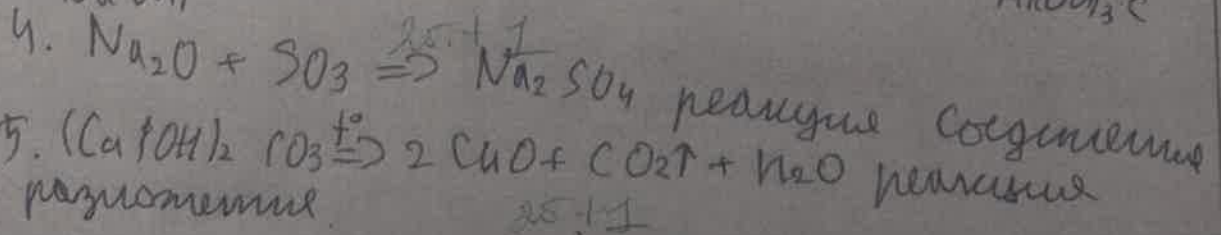 4. Na₂O + SO₃ => Na₂SO₄ реакция соединения
5. (Cu(OH)₂ CO₃ t° => 2 CuO + CO₂↑ + H₂O реакция
разложения